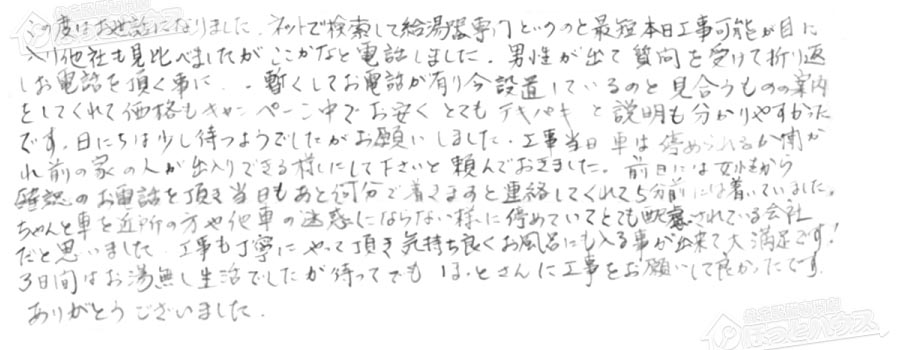 この度はお世話になりました。ネットで検索して給湯器専門というのと最短本日工事可能が目に
入り他社も見比べましたがここかなと電話しました。男性が出て質問を受けて折り返
しお電話を頂く事に・・暫くしてお電話が有り今設置しているのと見合うものの案内
をしてくれて価格もキャンペーン中でお安くとてもテキパキと説明も分かりやすかった
です。日にちは少し待つようでしたがお願いしました。工事当日車は停められるか聞か
れ前の家の人が出入りできる様にして下さいと頼んでおきました。前日には女性から
確認のお電話を頂き当日もあと何分で着きますと連絡してくれて5分前には着いていました。
ちゃんと車を近所の方や他車の迷惑にならない様に停めていてとても配慮されている会社
だと思いました。工事も丁寧にやって頂き気持ち良くお風呂にも入る事が出来て大満足です!
3日間はお湯無し生活でしたが待ってでもほっとさんに工事をお願いして良かったです。
ありがとうございました。
給湯器専門店
ほっとハウス